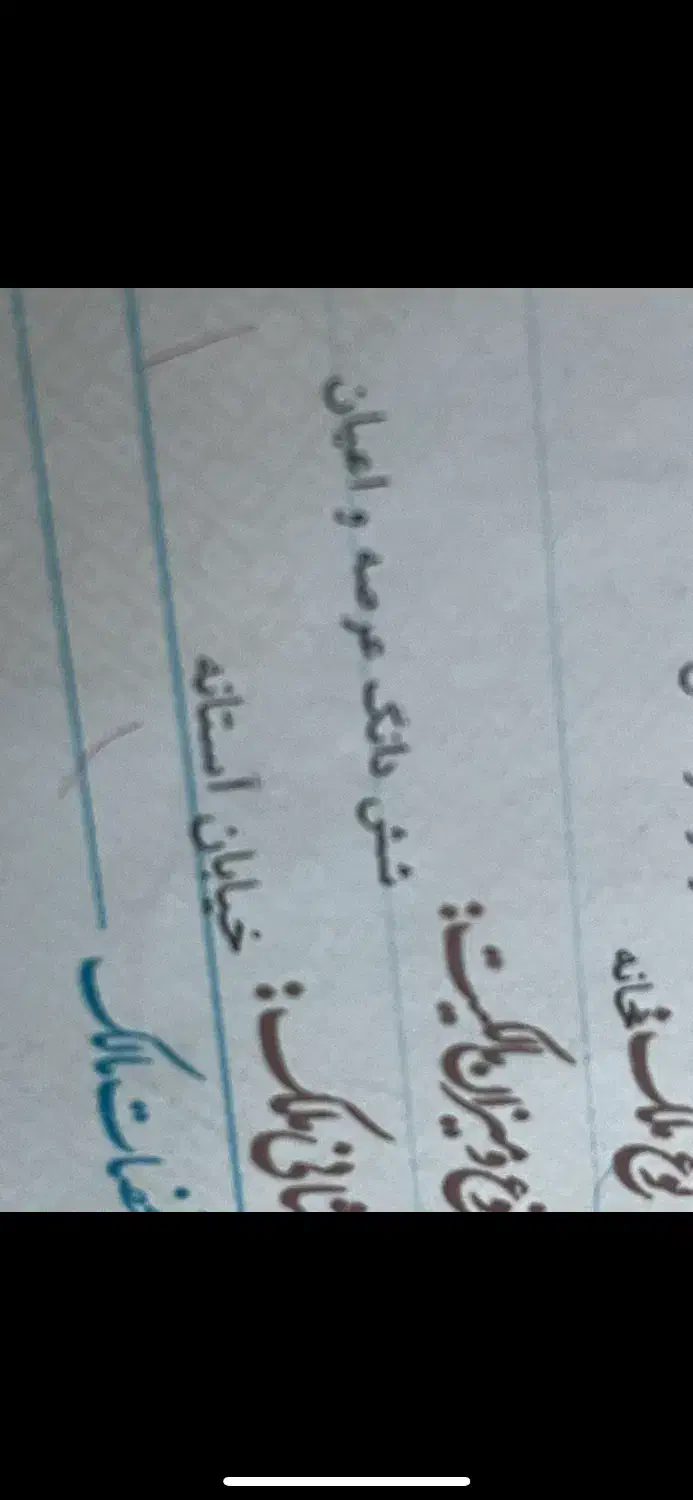 نوع ملک خانه
نوع و میزان مالکیت: شش دانگ عرصه و اعیان
نشانی ملک: خیابان آستانه
مشخصات مالک